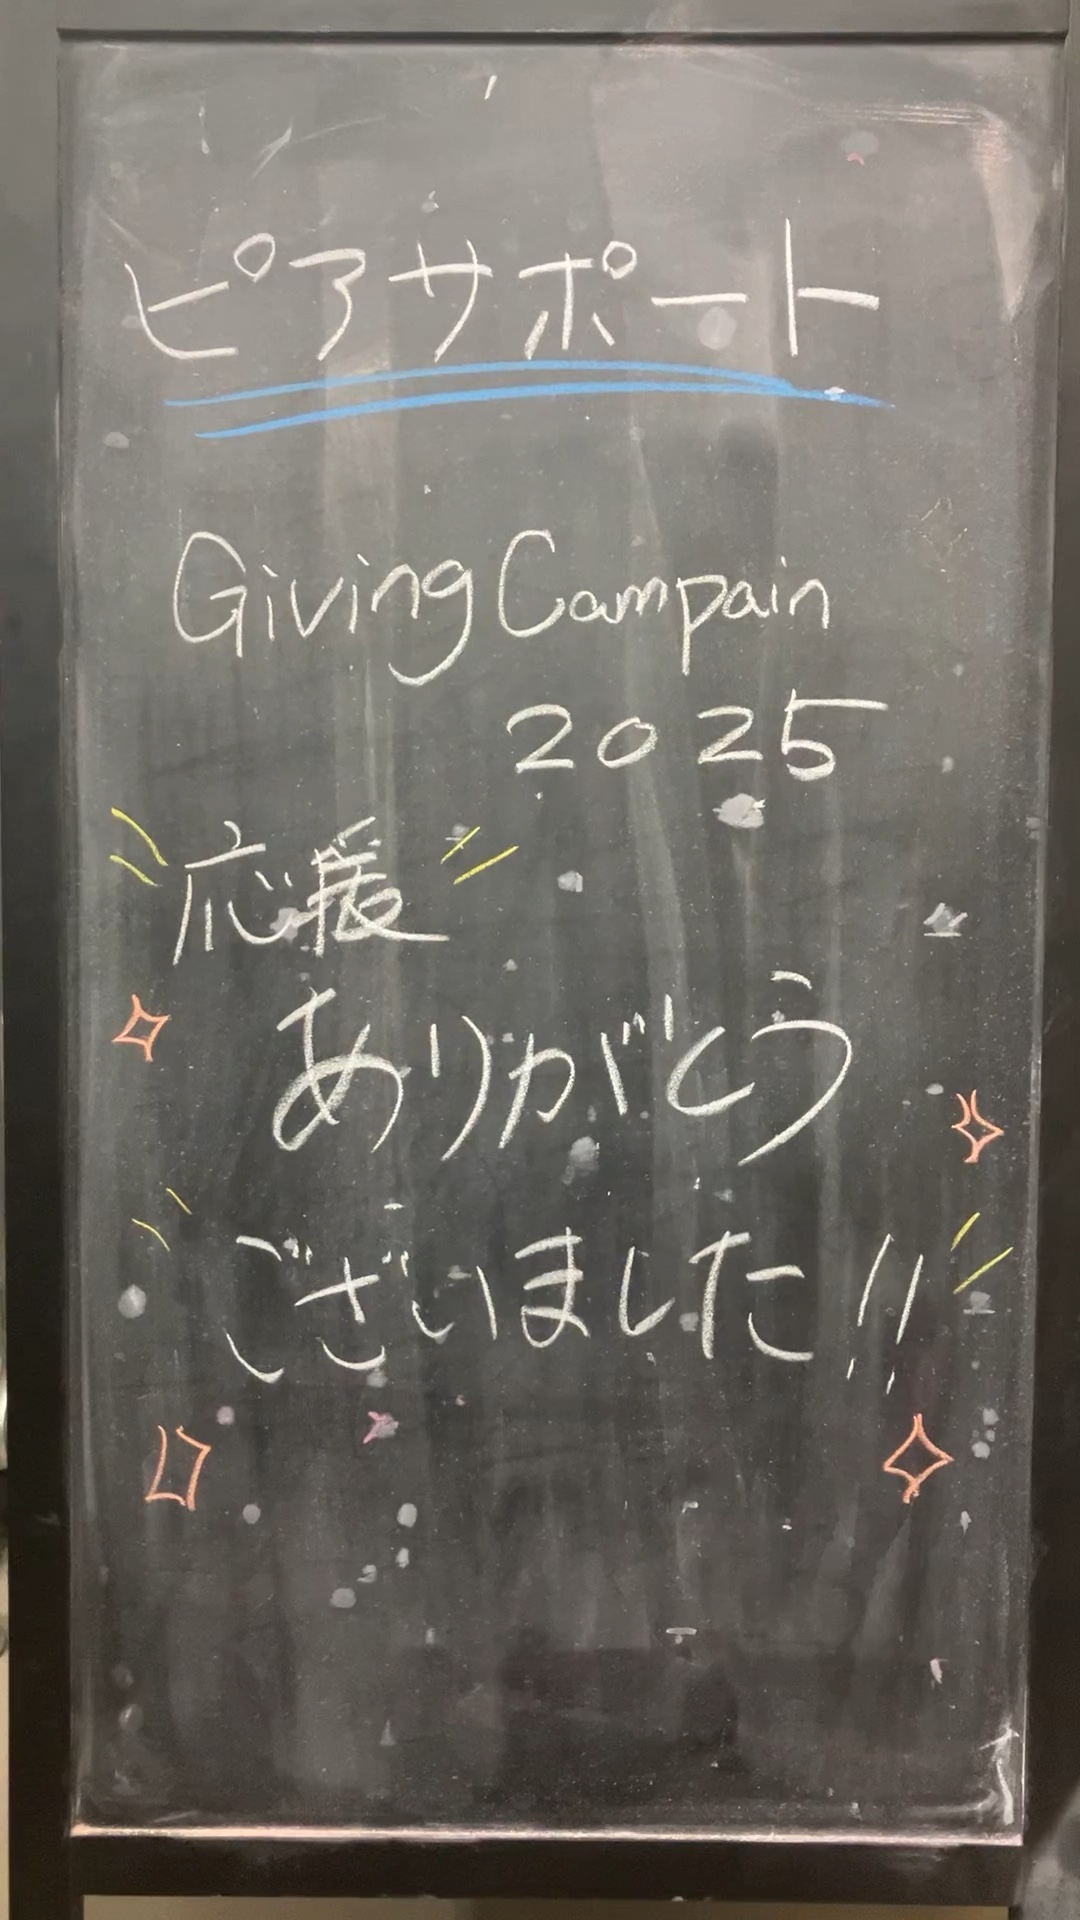 ピアサポート
Giving Campain
2025
応援
ありがとう
ございました!!